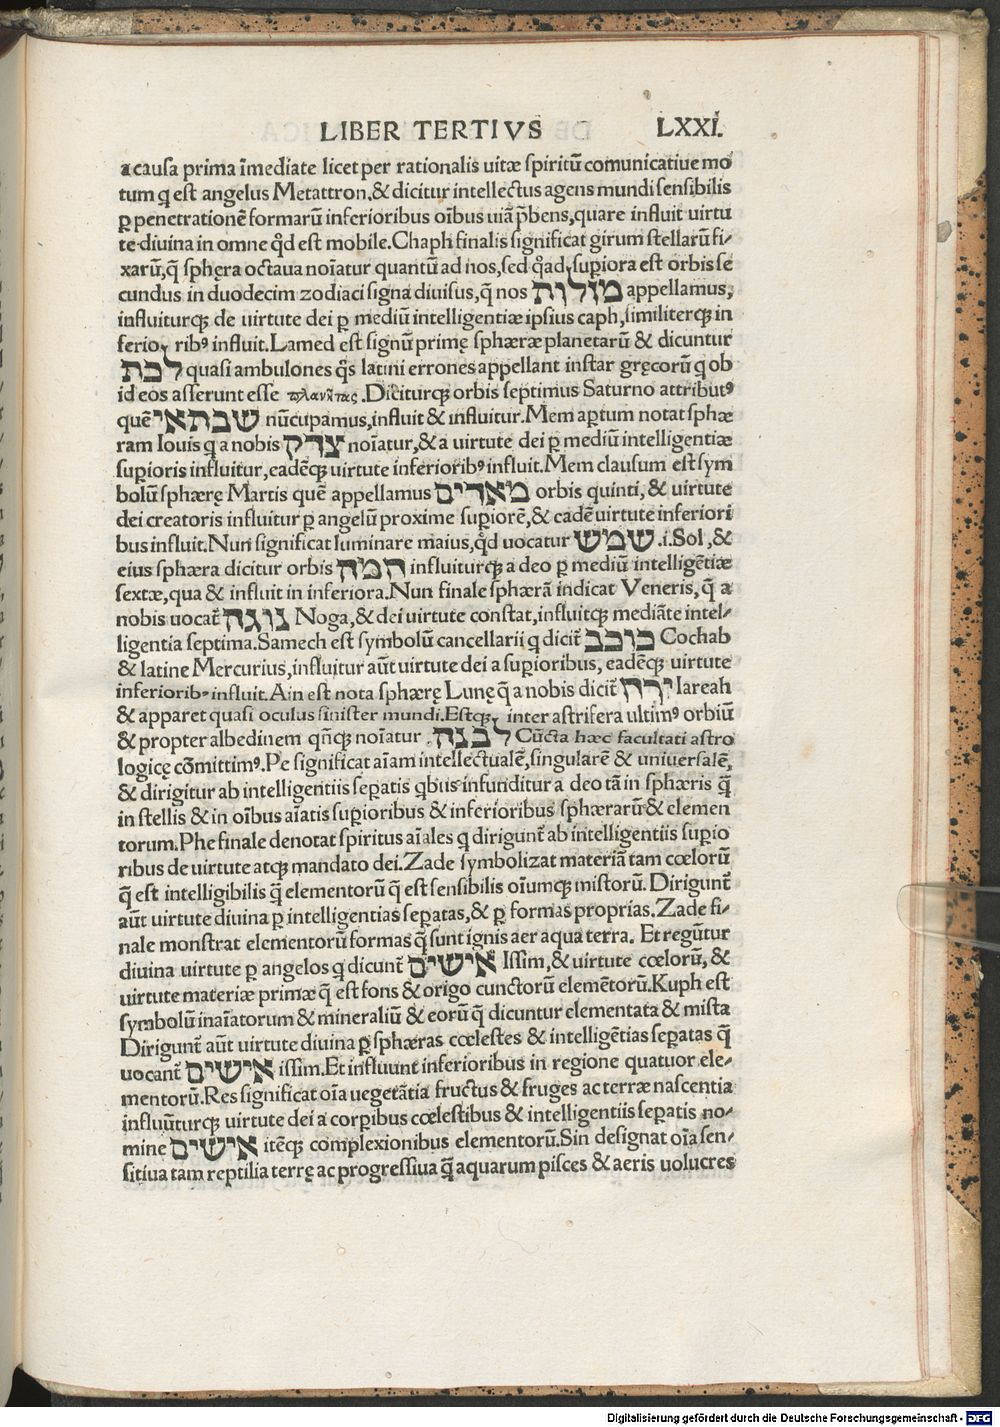 LIBER TERTIVS LXXI.
a causa prima īmediate licet per rationalis uitæ spiritū comunicatiue mo
tum q̄ est angelus Metattron.& dicitur intellectus agens mundi sensibilis
ꝑ penetrationē formarū inferioribus oībus uiā p̄bens,quare influit virtu
te diuina in omne qd̛ est mobile.Chaph finalis significat girum stellarū fi-
xarū,q̄ sphęra octaua noīatur quantū ad nos,sed qd̛ ad suꝑiora est orbis se
cundus in duodecim zodiaci signa diuisus,q̄ nos מזלות appellamus,
influiturqꝫ de uirtute dei ꝑ mediū intelligentiæ ipsius caph,similiterqꝫ in
ferioꝝ ribꝰ influit.Lamed est signū primę sphæræ planetarū & dicuntur
לכת quasi ambulones q̄s latini errones appellant instar gręcorū q ob
id eos asserunt esse πλανῆτας.Diciturqꝫ orbis septimus Saturno attributꝰ
quē שבתאי nūcupamus,influit & influitur.Mem aꝑtum notat sphæ
ram Iouis q̄ a nobis צדק noīatur,& a uirtute dei ꝑ mediū intelligentiæ
suꝑioris influitur,eadēqꝫ uirtute inferioribꝰ influit.Mem clausum est sym
bolū sphærę Martis quē appellamus מאדים orbis quinti, & uirtute
dei creatoris influitur ꝑ angelū proxime suꝑiorē,& eadē uirtute inferiori
bus influit.Nun significat luminare maius,qd̛ uocatur שמש .i.Sol,&
eius sphæra dicitur orbis חמה influiturqꝫ a deo ꝑ mediū intelligētiæ
sextæ,qua & influit in inferiora.Nun finale sphærā indicat Veneris, q̄ a
nobis uocat̄ נוגה Noga,& dei uirtute constat,influitqꝫ mediāte intel-
ligentia septima.Samech est symbolū cancellarii q dicit̄ כוכב Cochab
& latine Mercurius,influitur aūt uirtute dei a suꝑioribus, eadēqꝫ uirtute
inferioribꝰ influit.Ain est nota sphærę Lunę q̄ a nobis dicit̄ ירח Iareah
& apparet quasi oculus sinister mundi.Estqꝫ inter astrifera ultimꝰ orbiū
& propter albedinem qn̄qꝫ noīatur לבנה Cūcta hæc facultati astro
logicę cōmittimꝰ.Pe significat aīam intellectualē,singularē & uniuersalē,
& dirigitur ab intelligentiis seꝑatis qbus infunditur a deo tā in sphæris q̄
in stellis & in oībus aīatis suꝑioribus & inferioribus sphærarū & elemen
torum.Phe finale denotat spiritus aīales q dirigunt̄ ab intelligentiis suꝑio
ribus de uirtute atqꝫ mandato dei.Zade symbolizat materiā tam cœlorū
q̄ est intelligibilis q̄ elementorū q̄ est sensibilis oīumqꝫ mistorū. Dirigunt̄
aūt uirtute diuina ꝑ intelligentias seꝑatas,& ꝑ formas proprias.Zade fi-
nale monstrat elementorū formas q̄ sunt ignis aer aqua terra. Et regūtur
diuina uirtute ꝑ angelos q dicunt̄ אישים Issim,& uirtute cœlorū, &
uirtute materiæ primæ q̄ est fons & origo cunctorū elemētorū.Kuph est
symbolū inaīatorum & mineraliū & eorū q̄ dicuntur elementata & mista
Dirigunt̄ aūt uirtute diuina ꝑ sphæras cœlestes & intelligētias seꝑatas q̄
uocant̄ אישים issim.Et influunt inferioribus in regione quatuor ele-
mentorū.Res significat oīa uegetātia fructus & fruges ac terræ nascentia
influūturqꝫ uirtute dei a corꝑibus cœlestibus & intelligentiis seꝑatis no-
mine אישים itēqꝫ complexionibus elementorū.Sin designat oīa sen-
sitiua tam reptilia terrę ac progressiua q̄ aquarum pisces & aeris uolucres
Digitalisierung gefördert durch die Deutsche Forschungsgemeinschaft - DFG